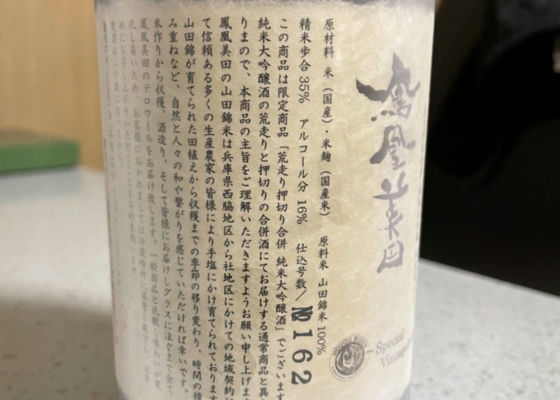 鳳凰美田
Special
Vintage
原材料 米(国産)・米麹(国産米) 原料米 山田錦米100%
精米歩合 35% アルコール分 16% 仕込号数/№162
この商品は限定商品「荒走り押切り合併 純米大吟醸酒」でございます
純米大吟醸酒の荒走りと押切りの合併酒にてお届けする通常商品と異
りまので、本商品の主旨をご理解いただきますようお願い申し上げま
鳳凰美田の山田錦米は兵庫県西脇地区から社地区にかけての地域契約
て信頼ある多くの生産農家の皆様により手塩にかけ育てられており
山田錦が育てられた田植えから収穫までの季節の移り変わり、時間の積
み重ねなど、自然と人々の和や繋がりを感じていただければ幸いです。
米作りから収穫、酒造り、そして皆様にお届けしグラスに注ぐまで全て
鳳凰美田のテロワールをお届け致します。一般商品と比較し